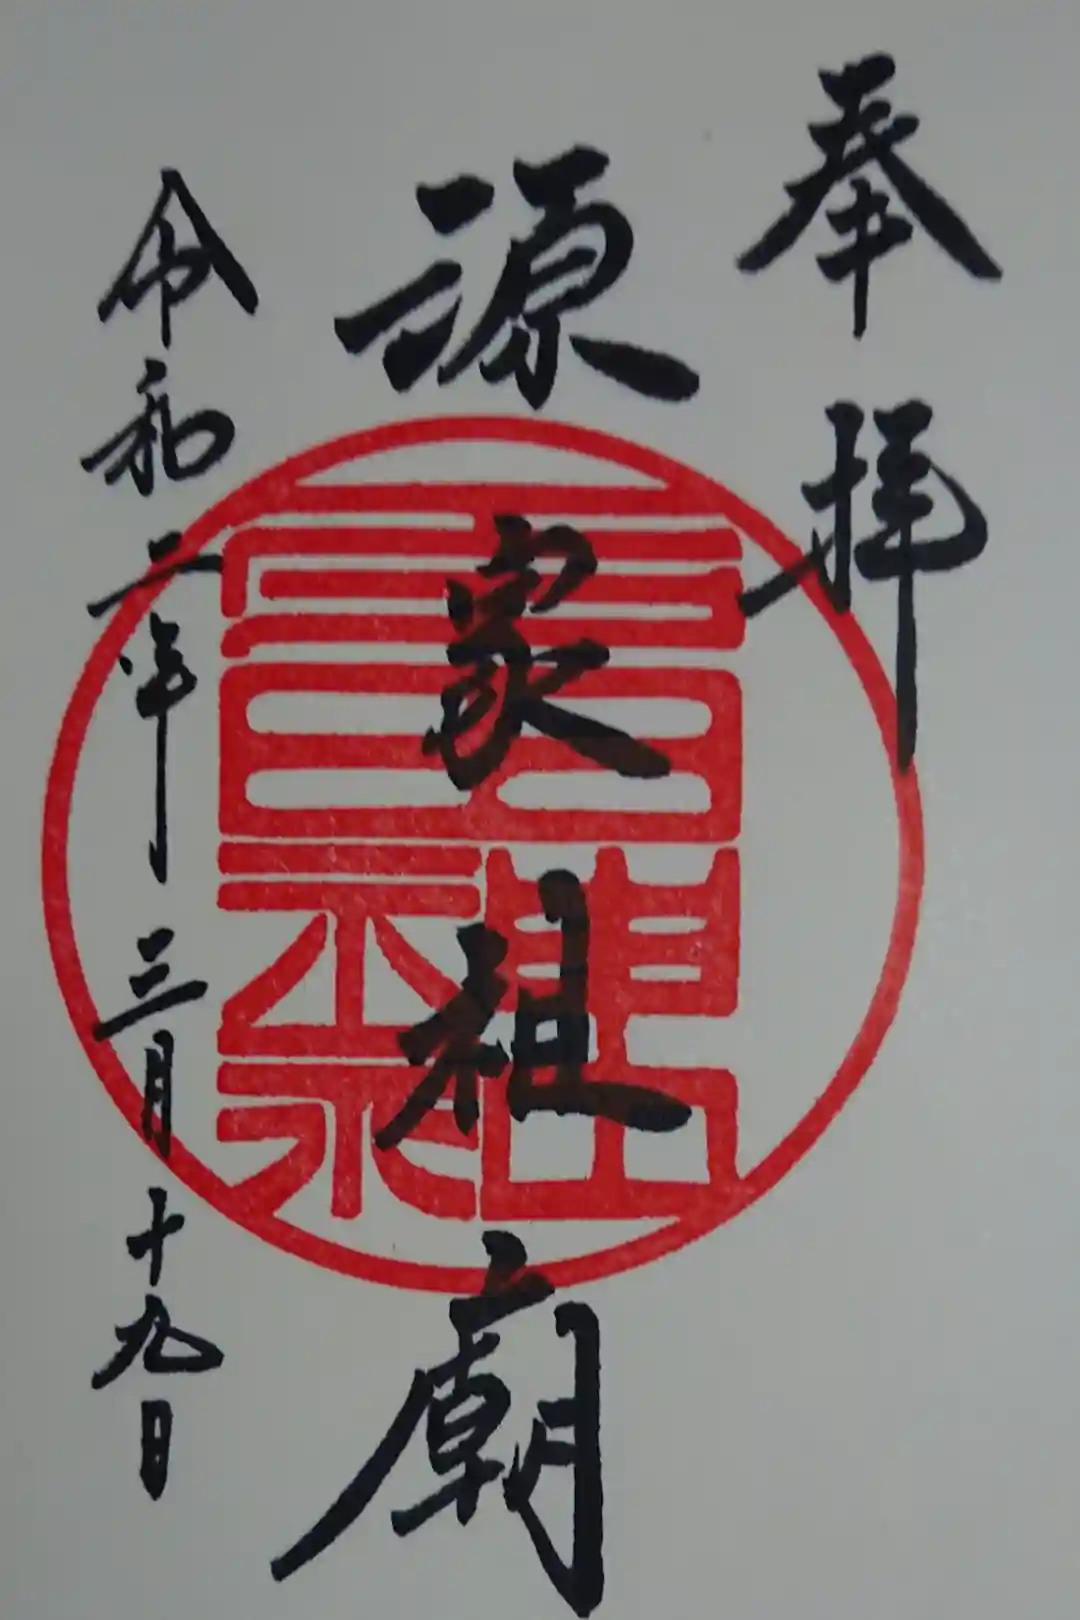 奉拝
源家祖廟
令和二年三月十九日